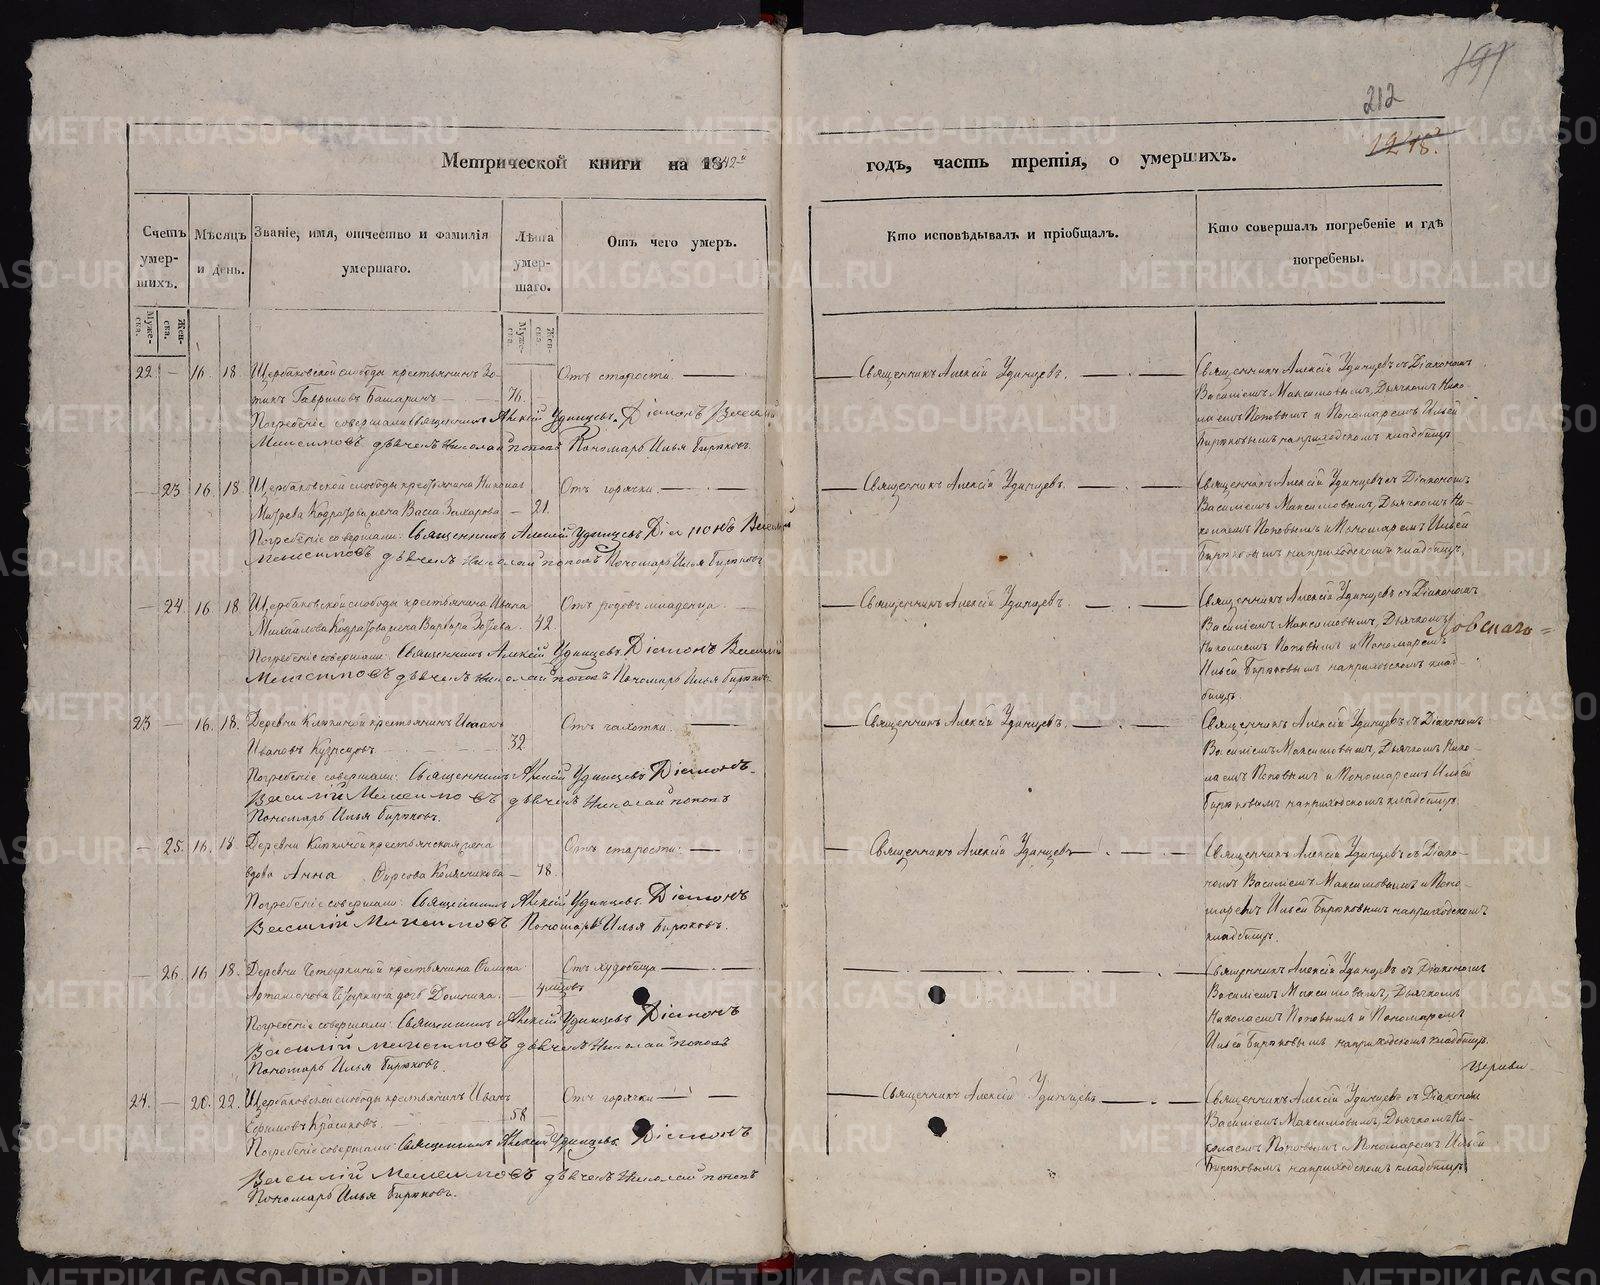 212
Метрической книги на 1842й
годъ, часть третія, о умершихъ.
Счетъ умер-
шихъ.
Мѣсяцъ
и день.
Званіе, имя, отчество и фамилія
умершаго.
Лѣта
умер-
шаго.
Отъ чего умеръ.
Кто исповѣдывалъ и пріобщалъ.
Кто совершалъ погребеніе и гдѣ
погребены.
Муже-
ска.
Жен-
ска.
Муже-
ска.
Жен-
ска.
22 — 16 18 Щербаковской слободы крестьянинъ Зо-
тикъ Гавриловъ Башаринъ 76. Отъ старости.
Погребеніе совершали священникъ Алексій Удинцевъ. Діаконъ Василій
Максимовъ дьячекъ Николай Поповъ Пономарь Илья Бирюковъ.
Священникъ Алексій Удинцевъ.
Священникъ Алексій Удинцевъ съ Діакономъ
Василіемъ Максимовымъ, Дьячкомъ Нико-
лаемъ Поповымъ и Пономаремъ Ильей
Бирюковымъ на приходскомъ кладбищѣ.
— 23 16 18 Щербаковской слободы крестьянина
жена Васса Захарова — 21. Отъ горячки.
Погребеніе совершали: Священникъ Алексій Удинцевъ Діаконъ Василій
Максимовъ дьячекъ Николай Поповъ Пономарь Илья Бирюковъ
Священникъ Алексій Удинцевъ.
Священникъ Алексій Удинцевъ съ Діакономъ
Василіемъ Максимовымъ, Дьячкомъ Ни-
колаемъ Поповымъ и Пономаремъ Ильей
Бирюковымъ на приходскомъ кладбищѣ.
— 24 16 18 Щербаковской слободы крестьянина Ивана
Михайлова жена Варвара 42. Отъ родовъ младенца.
Погребеніе совершали: Священникъ Алексій Удинцевъ. Діаконъ Василій
Максимовъ дьячекъ Николай Поповъ Пономарь Илья Бирюковъ
Священникъ Алексій Удинцевъ.
Священникъ Алексій Удинцевъ съ Діакономъ
Василіемъ Максимовымъ, Дьячкомъ
Николаемъ Поповымъ и Пономаремъ
Ильей Бирюковымъ на приходскомъ клад-
бищѣ
23 — 16. 18. Деревни крестьянинъ Исаакъ
Ивановъ Кузнецовъ 32 Отъ чахотки.
Погребеніе совершали: Священникъ Алексій Удинцевъ Діаконъ
Василій Максимовъ дьячекъ Николай Поповъ
Пономарь Илья Бирюковъ.
Священникъ Алексій Удинцевъ.
Священникъ Алексій Удинцевъ съ Діакономъ
Василіемъ Максимовымъ, Дьячкомъ Нико-
лаемъ Поповымъ и Пономаремъ Ильей
Бирюковымъ на приходскомъ кладбищѣ
— 25. 16. 18 Деревни крестьянская жена
вдова Анна Фирсова Колесникова — 78. Отъ старости.
Погребеніе совершали: Священникъ Алексій Удинцевъ. Діаконъ
Василій Максимовъ Пономарь Илья Бирюковъ.
Священникъ Алексій Удинцевъ
Священникъ Алексій Удинцевъ съ Діако-
номъ Василіемъ Максимовымъ и Поно-
маремъ Ильей Бирюковымъ на приходскомъ
кладбищѣ.
— 26. 16 18. Деревни крестьянина Филипа
дочь Домника. 4 мѣсяцовъ Отъ худобища
Погребеніе совершали: Священникъ Алексій Удинцевъ Діаконъ
Василій Максимовъ дьячекъ Николай Поповъ
Пономарь Илья Бирюковъ.
Священникъ Алексій Удинцевъ съ Діакономъ
Василіемъ Максимовымъ, Дьячкомъ
Николаемъ Поповымъ и Пономаремъ
Ильей Бирюковымъ на приходскомъ кладбищѣ.
церкви
24. — 20. 22. Щербаковской слободы крестьянинъ Иванъ
Ефимовъ Красиковъ. 58 Отъ горячки
Погребеніе совершали: Священникъ Алексій Удинцевъ Діаконъ
Василій Максимовъ дьячекъ Николай Поповъ
Пономарь Илья Бирюковъ.
Священникъ Алексій Удинцевъ
Священникъ Алексій Удинцевъ съ Діакономъ
Василіемъ Максимовымъ, Дьячкомъ Ни-
колаемъ Поповымъ и Пономаремъ Ильей
Бирюковымъ на приходскомъ кладбищѣ
METRIKI.GASO-URAL.RU